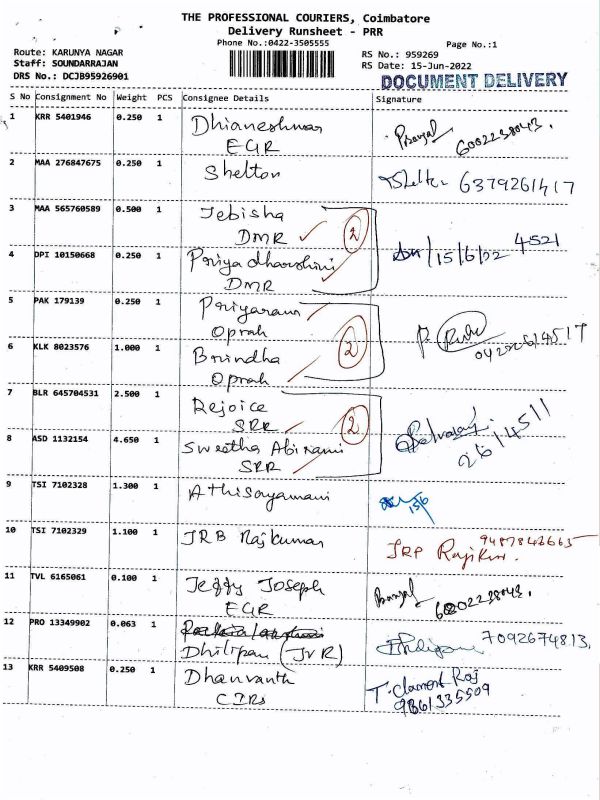 THE PROFESSIONAL COURIERS, Coimbatore
Delivery Runsheet - PRR
Phone No.:0422-3505555
Page No.:1
Route: KARUNYA NAGAR
RS No.: 959269
Staff: SOUNDARRAJAN
RS Date: 15-Jun-2022
DRS No.: DCJB95926901
DOCUMENT DELIVERY
S No Consignment No Weight PCS Consignee Details Signature
1 KRR 5401946 0.250 1 Dhianeshwar
EGR 6002238043.
2 MAA 276847675 0.250 1 Shelton 6379261417
3 MAA 565760589 0.500 1 Jebisha
DMR 2
15/6/22 4521
4 DPI 10150668 0.250 1 Priya dharshini
DMR
5 PAK 179139 0.250 1 Priyaraun
Oprah
2
6 KLK 8023576 1.000 1 Brindha
Oprah
7 BLR 645704531 2.500 1 Rejoice
SRR 2
2614511
8 ASD 1132154 4.650 1 Swetha Abirami
SRR
9 TSI 7102328 1.300 1 Athisayamani
15/6
10 TSI 7102329 1.100 1 JRB Rajkumar
9487842665
11 TVL 6165061 0.100 1 Jeffy Joseph
EGR
12 PRO 13349902 0.063 1
Dhilipan (JVR) 7092674813.
13 KRR 5409508 0.250 1 Dhanvanth T. Clament Raj
CIRs 9861335509